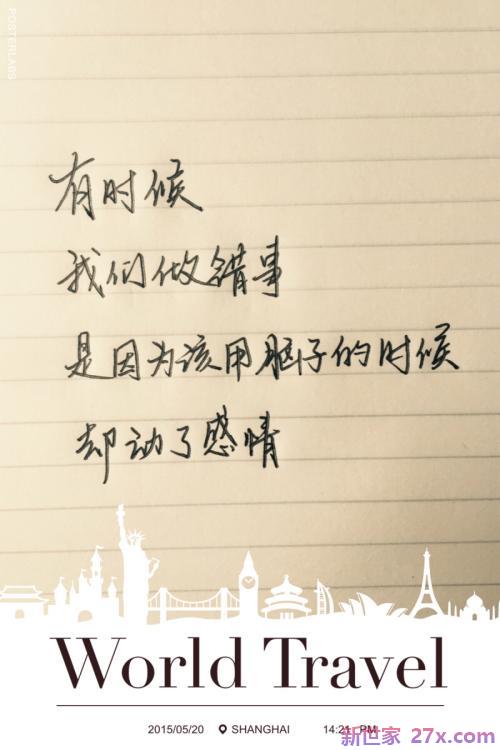 POSTERLABS
有时候
我们做错事
是因为该用脑子的时候
却动了感情
World Travel
2015/05/20 SHANGHAI 14:21 PM
新世家 27x.com